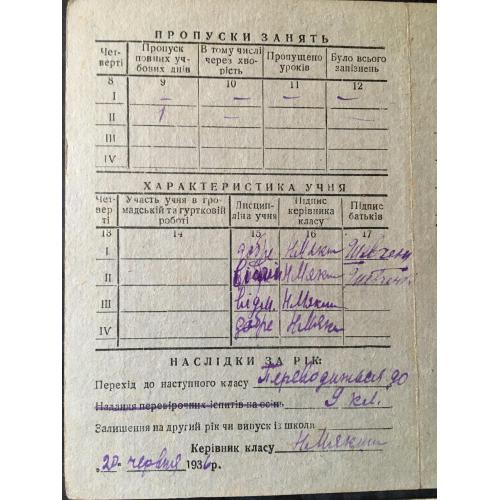 ПРОПУСКИ ЗАНЯТЬ
Чет-верті Пропуск повних уч-бових днів В тому числі через хво-рість Пропущено уроків Було всього запізнень
8 9 10 11 12
I — — — —
II 1 —
III
IV
ХАРАКТЕРИСТИКА УЧНЯ
Чет-верті Участь учня в гро-мадській та гуртковій роботі Дисцип-ліна учня Підпис керівника класу Підпис батьків
13 14 15 16 17
I добре
II
III відм.
IV добре
НАСЛІДКИ ЗА РІК:
Перехід до наступного класу Переводиться до
Надання перевірочних іспитів на осінь 9 кл.
Залишення на другий рік чи випуск із школи
Керівник класу
„20" червня 1936 р.